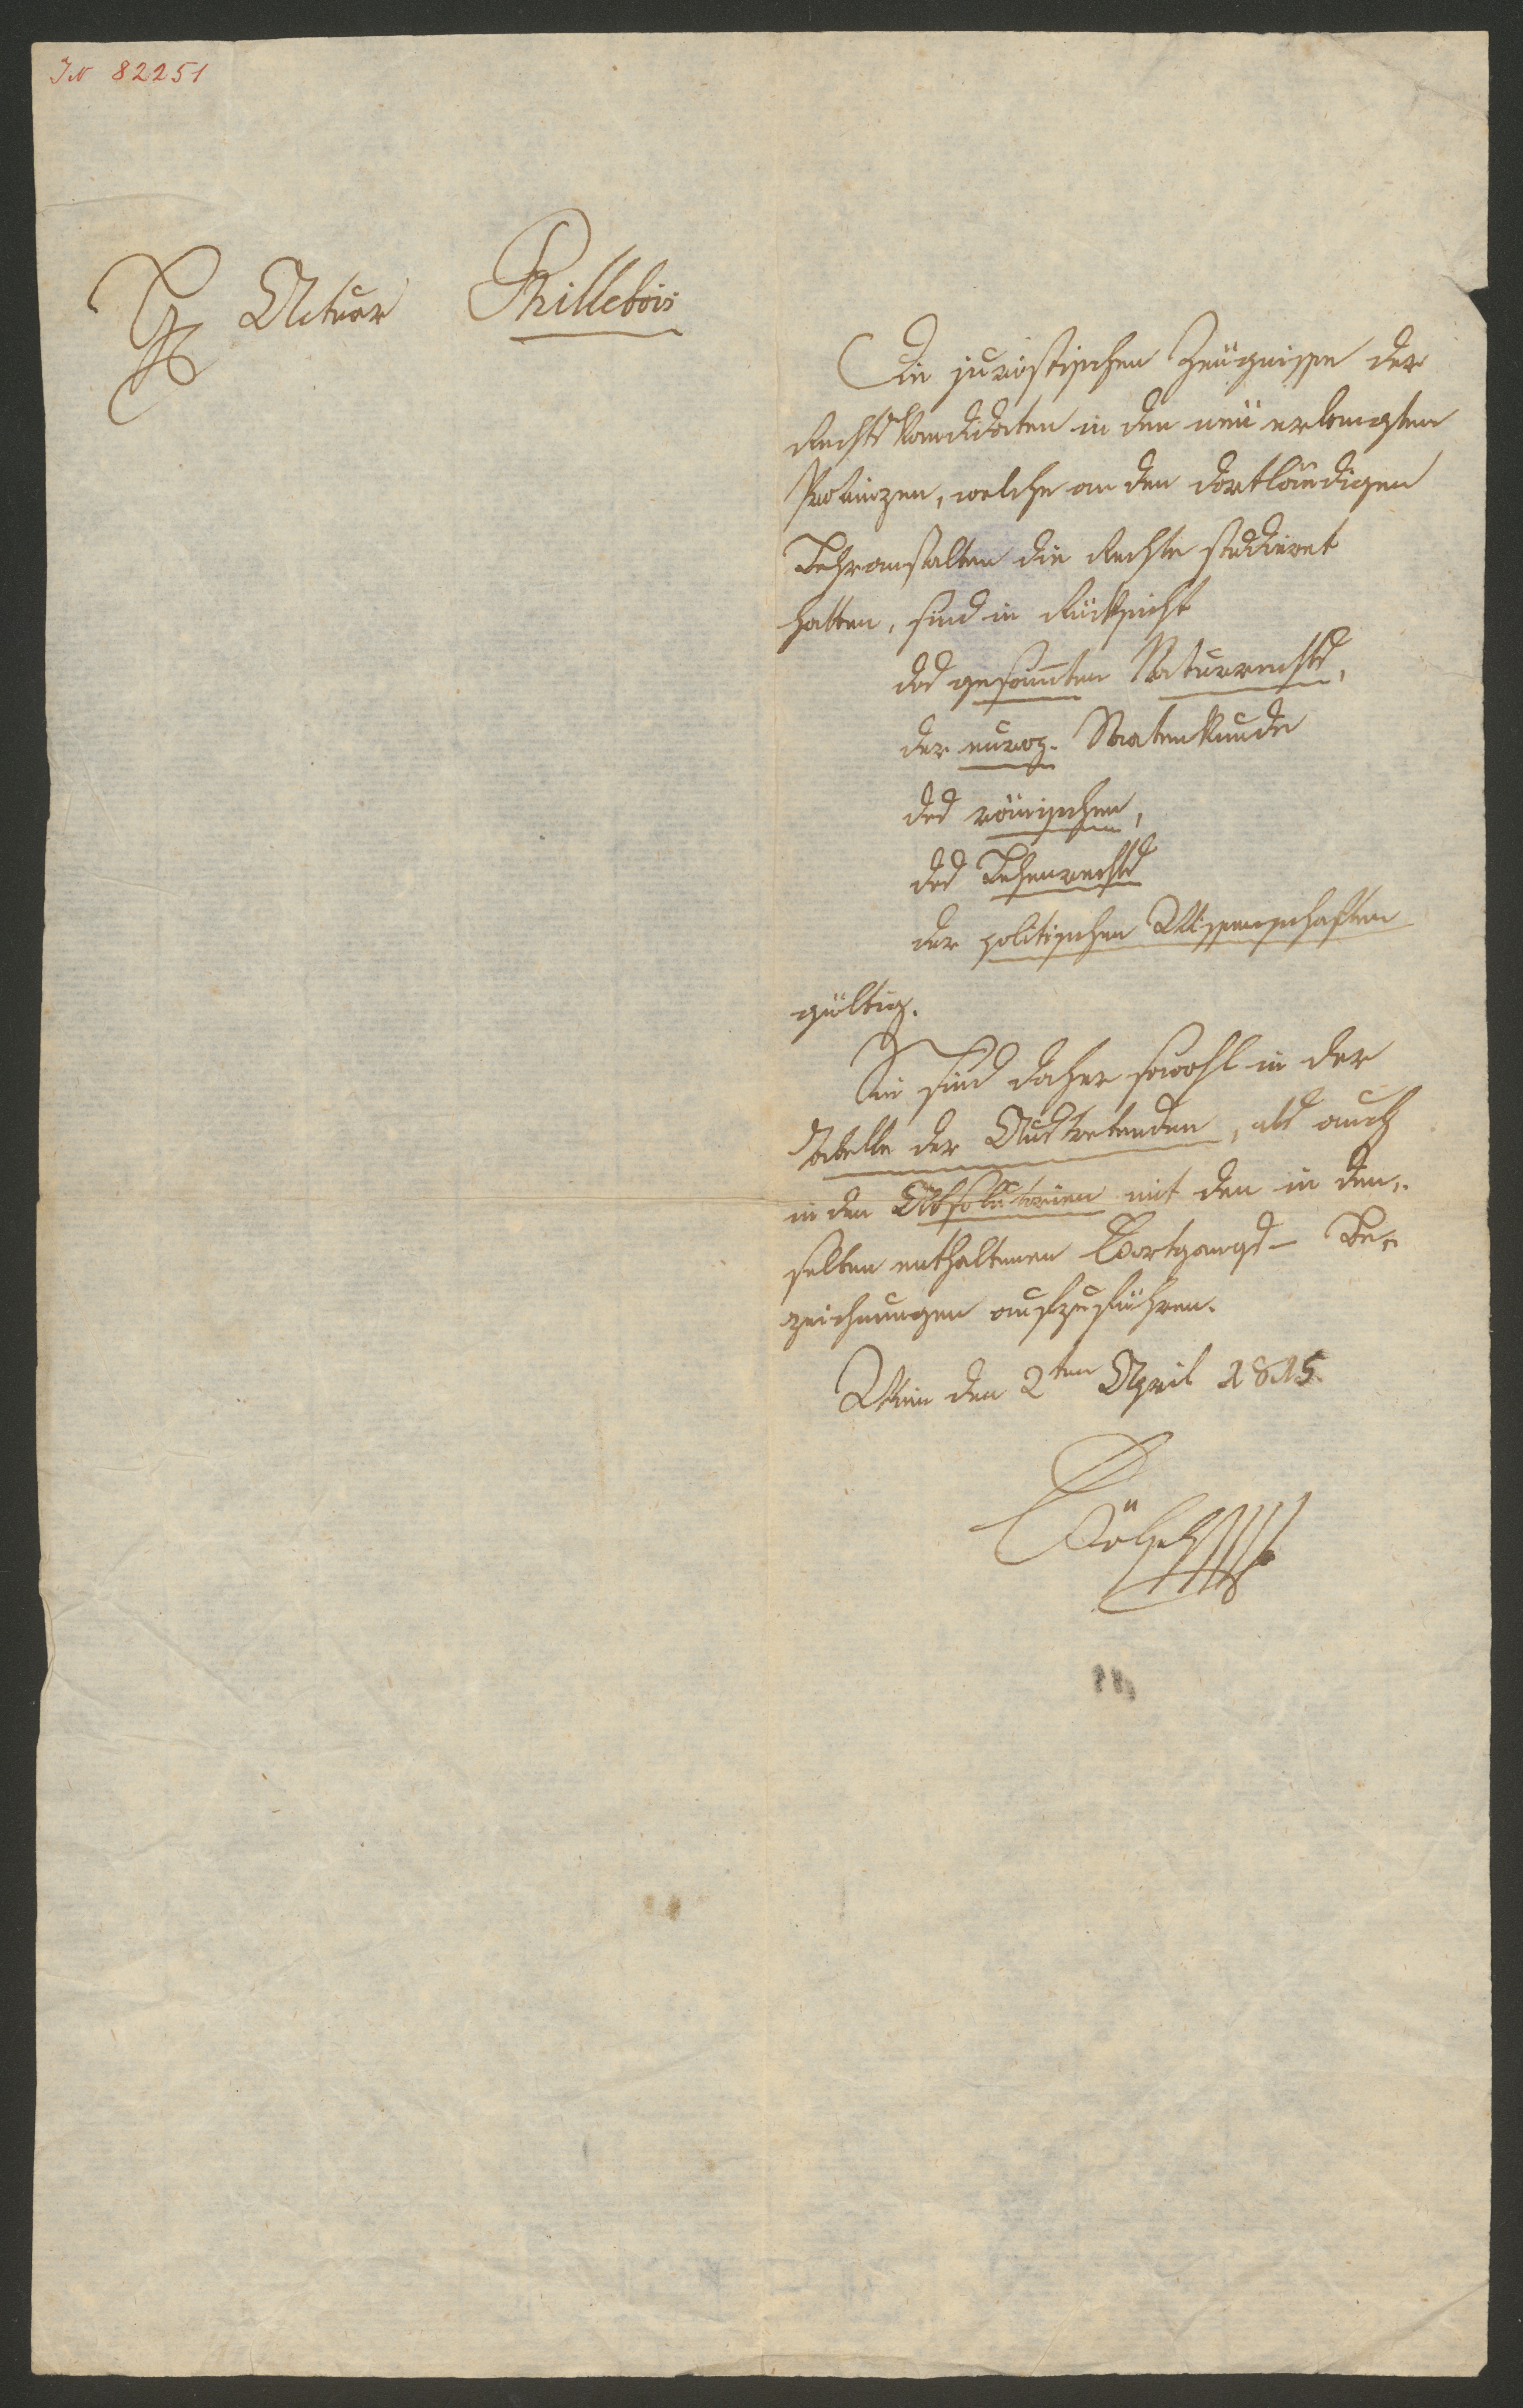 IN 82251
Hr Actuar Phillebois
Die juristischen Zeugnisse der
Rechtskandidaten in den neü erlangten
Provinzen, welche an den dortländigen
Lehranstalten die Rechte studieret
hatten, sind in Rücksicht
des gesammten Naturrechts,
der europ. Staatenkunde
des römischen,
des Lehenrechts
der politischen Wissenschaften
gültig.
Sie sind daher sowohl in der
Tabelle der Austretenden, als auch
in den Absolutorien mit den in den„
selben enthaltenen Fortgangs- Be„
zeichnungen aufzuführen.
Wien den 2ten April 1815